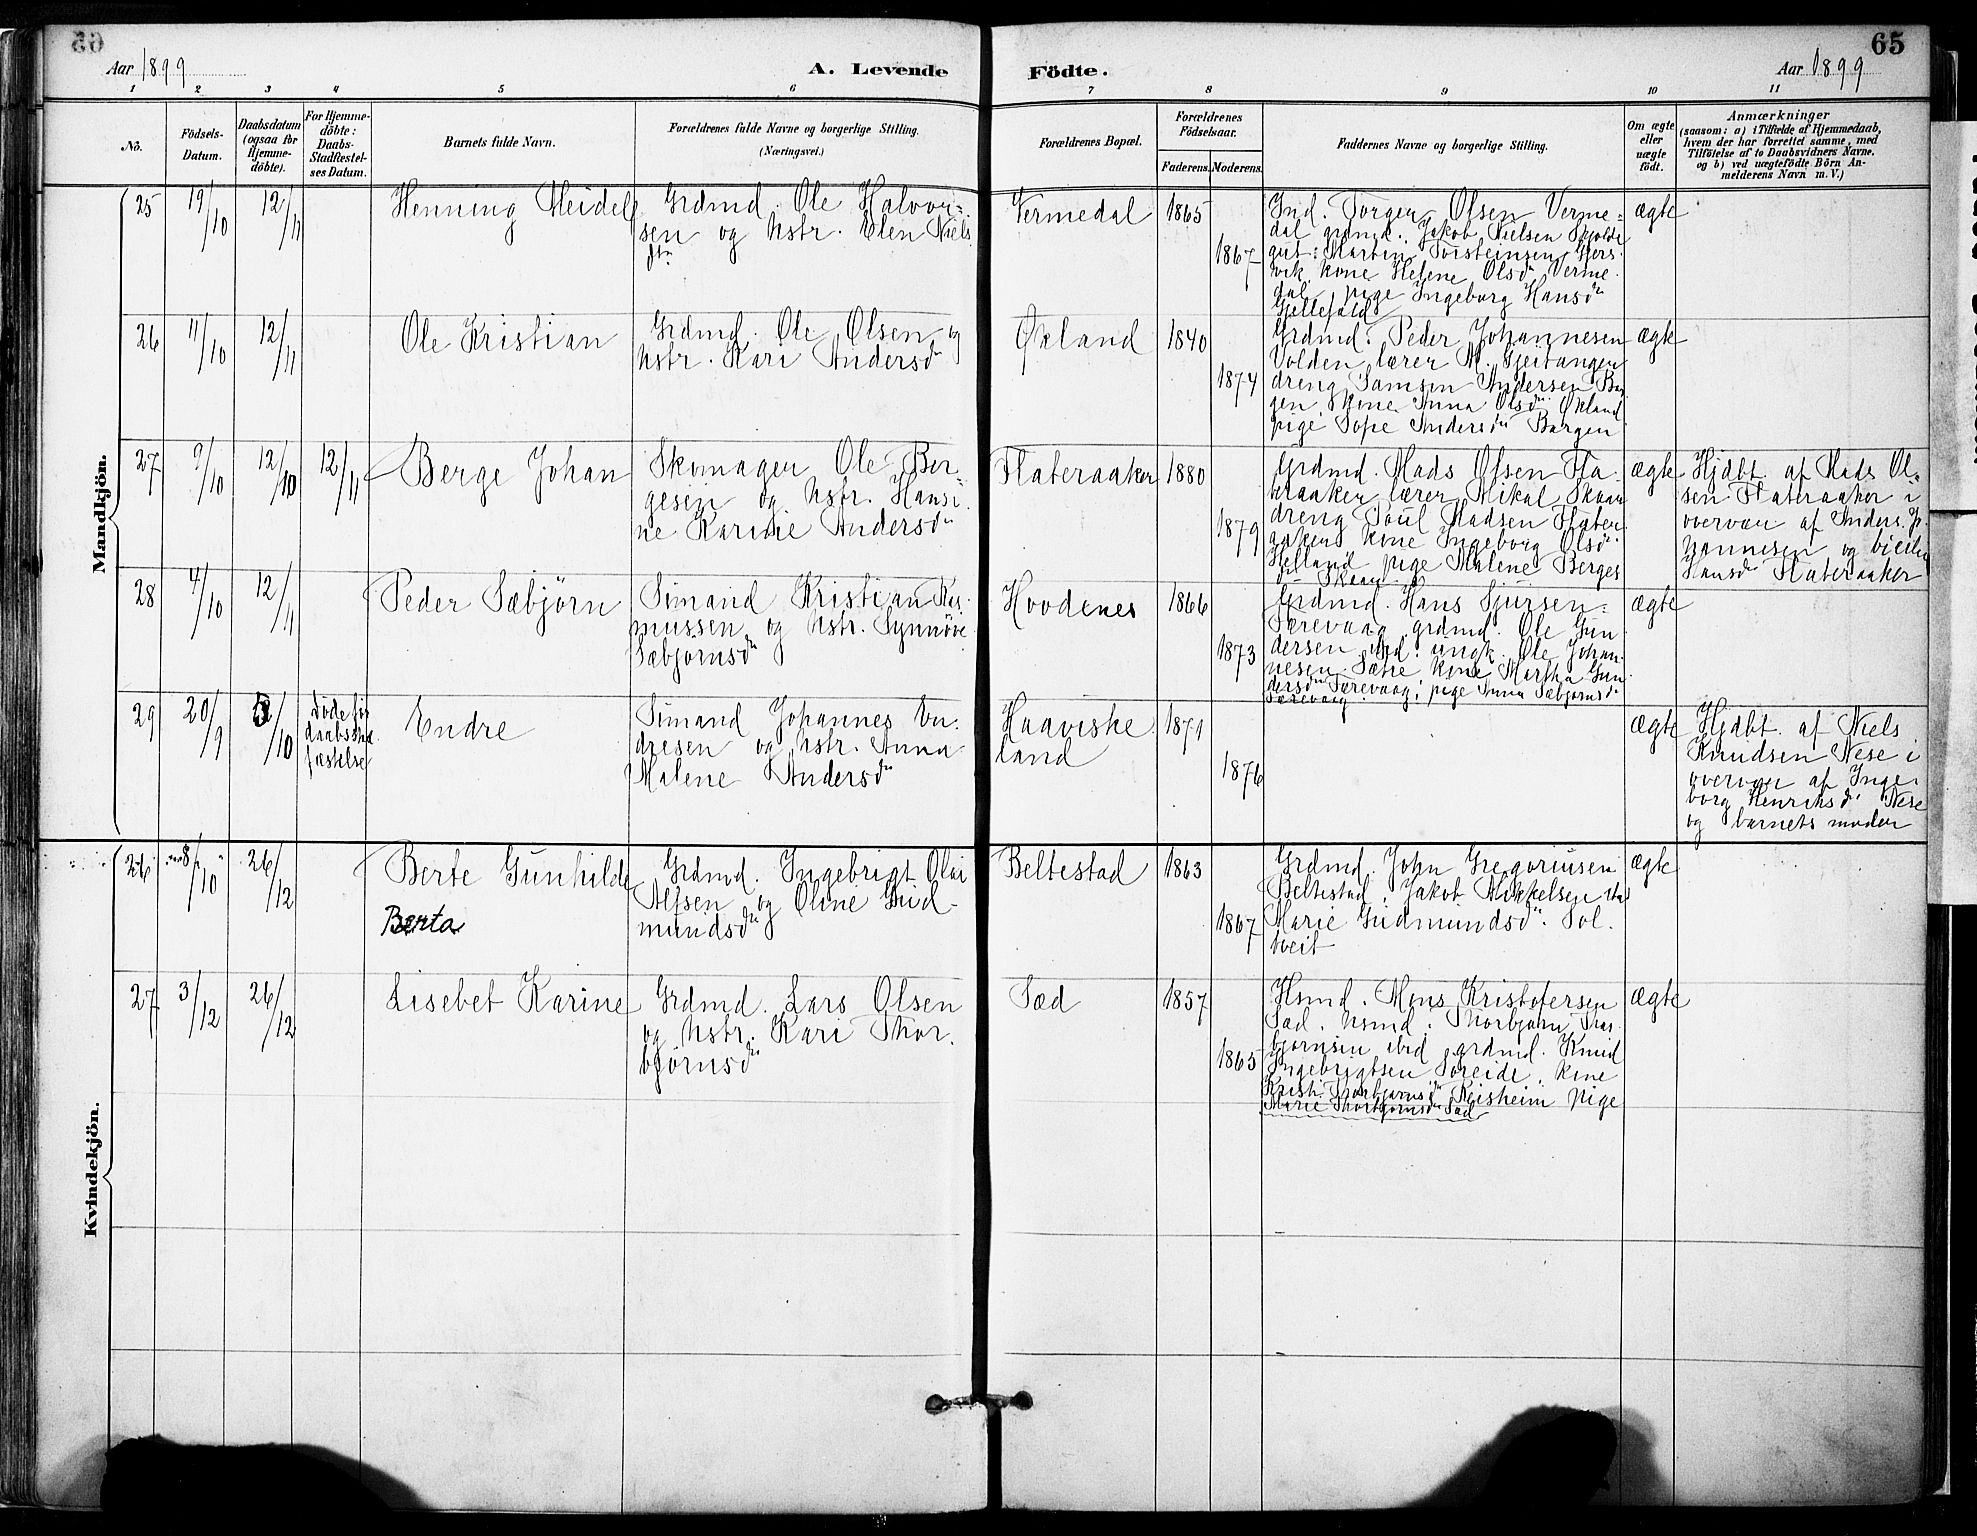 65
Aar 1899
A. Levende
Födte.
Aar 1899
1 2 3 4 5 6 7 8 9 10 11
No.
Födsels-
Datum.
Daabsdatum
(ogsaa for
Hjemme-
döbte).
For Hjemme-
döbte:
Daabs-
Stadfæstel-
ses Datum.
Barnets fulde Navn.
Forældrenes fulde Navne og borgerlige Stilling.
(Næringsvei.)
Forældrenes Bopæl.
Forældrenes
Födselsaar.
Faderens. Moderens.
Faddernes Navne og borgerlige Stilling.
Om ægte
eller
uægte
födt.
Anmærkninger
(saasom: a) i Tilfælde af Hjemmedaab,
hvem der har forrettet samme, med
Tilföielse af to Daabsvidners Navne.
og b) ved uægtefödte Börn An-
melderens Navn m. V.)
Mandkjön.
25
19/10
12/11
Henning Heide
Grdmd. Ole Halvor-
sen og hstr. Elen Niels
dtr
Vermedal
1865
1867
Ind. Torger Olsen Verme=
dal grdmd. Jakob Nielsen
Martin Torsteinsen
vik kone Helene Olsdr Verme
dal, pige Ingeborg Hansdr
ægte
26
11/10
12/11
Ole Kristian
Grdmd. Ole Olsen og
hstr. Kari Andersdr
Økland
1840
1874
Grdmd. Peder Johannesen
Volden lærer M. Gjeitangen
dreng Samson Andersen Bar
gen, kone Anna Olsdr Økland
pige Sofie Andersdr Bargen
ægte
27
9/10
12/10
12/11
Berge Johan
Skomager Ole Ber-
gesen og hstr. Hansi
ne Karine Andersdr
Flateraaker
1880
1879
Grdmd. Mads Olsen Fla-
teraaker lærer Mikal Skaar
dreng Poul Madsen Flater
aaker kone Ingeborg Olsdr
Helland pige Malene Berges
dr Skaar
ægte
Hjdbt. af Mads Ol-
sen Flateraaker i
overvær af Anders Jo
hannesen og
Hansdr Flateraaker
28
4/10
12/11
Peder Sæbjörn
Sömand Kristian Ras
mussen og hstr. Synnöve
Sæbjörnsdr
Hovdenes
1866
1873
Grdmd. Hans Sjursen
Færevaag grdmd. Ole Gun
dersen ibd. ungk. Ole Johan
nesen Sætre kone Martha Gun
dersdr Færevaag, pige Anna Sæbjørnsdr
Færevaag
ægte
29
20/9
/10
Döde för
daabsstad
fæstelse
Endre
Sömand Johannes En
dresen og hstr. Anna
Malene Andersdr
Haaviske
land
1871
1876
ægte
Hjdbt. af Niels
Knudsen Nese i
overvær af Inge-
borg Henriksdr Nese
og barnets moder
Kvindekjön.
26
8/10
26/12
Berte Gunhilde
Berta
Grdmd. Ingebrigt Olai
Alfsen og Oline Gud-
mundsdr
Beltestad
1863
1867
Grdmd. John Gregoriusen
Beltestad, Jakob Mikkelsen ibd
Marie Gudmundsdr Sol.
tveit
ægte
27
3/12
26/12
Lisebet Karine
Grdmd. Lars Olsen
og hstr. Kari Thor.
björnsdr
Sæd
1857
1865
Hsmd. Mons Kristofersen
Sæd. hsmd. Thorbjørn Thor
bjornsen ibid grdmd. Knud
Ingebrigtsen Soreide, kone
Kristi Thorbjørnsdr Reisheim pige
Marie Thorbjørnsdr Sæd
ægte